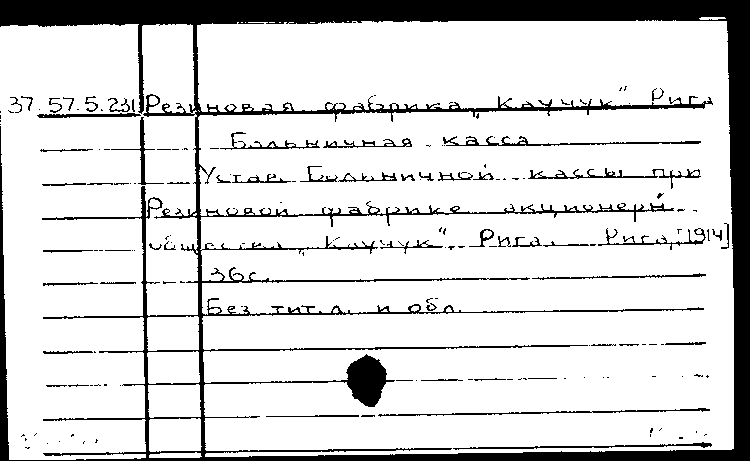 37.57.5.231 Резиновая фабрика „Каучук" Рига
Больничная касса
Устав Больничной кассы при
Резиновой фабрике акционерн
общества „Каучук". Рига. Рига, [1914]
36с.
Без тит.л. и обл.